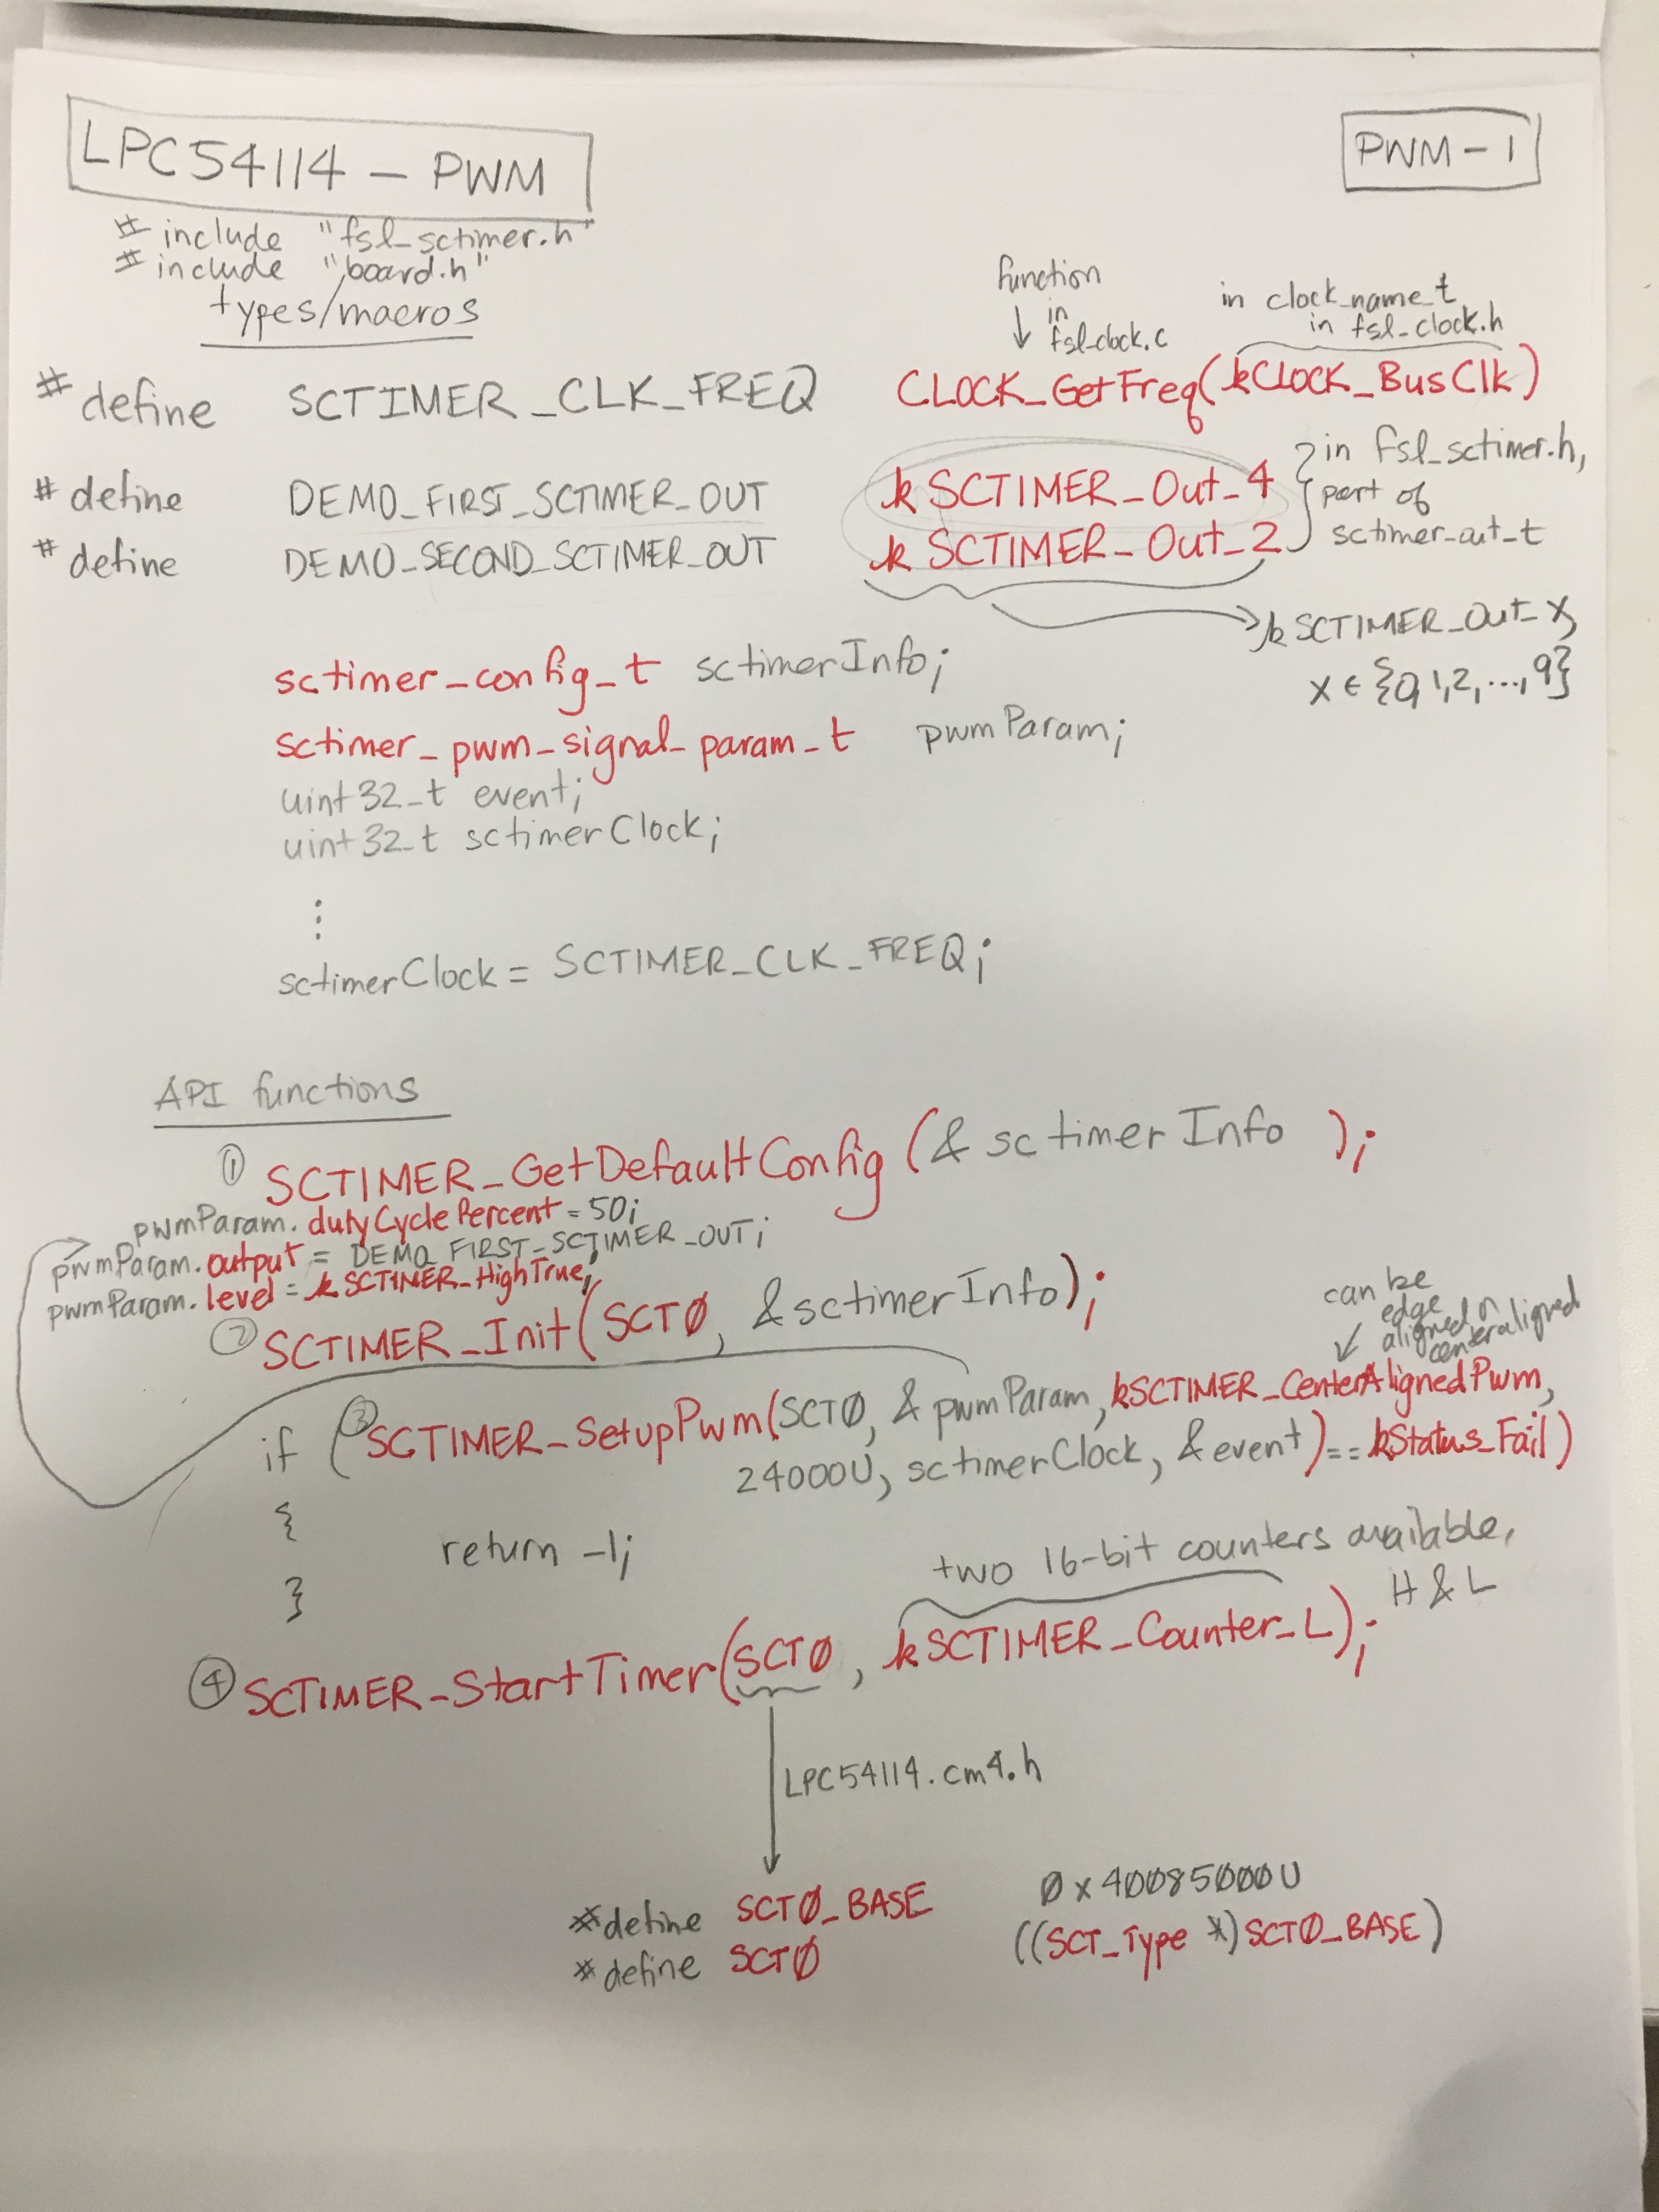 LPC54114 – PWM
PWM – 1
# include "fsl_sctimer.h"
# include "board.h"
types/macros
function
↓ in
fsl_clock.c
in clock_name_t
in fsl_clock.h
# define SCTIMER_CLK_FREQ CLOCK_GetFreq(kCLOCK_BusClk)
# define DEMO_FIRST_SCTIMER_OUT kSCTIMER_Out_4
# define DEMO_SECOND_SCTIMER_OUT kSCTIMER_Out_2
} in fsl_sctimer.h,
part of
sctimer_out_t
kSCTIMER_Out_X,
X ∈ {0,1,2,...,9}
sctimer_config_t sctimerInfo;
sctimer_pwm_signal_param_t pwmParam;
uint32_t event;
uint32_t sctimerClock;
⋮
sctimerClock = SCTIMER_CLK_FREQ;
API functions
① SCTIMER_GetDefaultConfig (& sctimerInfo );
pwmParam.dutyCyclePercent = 50;
pwmParam.output = DEMO_FIRST_SCTIMER_OUT;
pwmParam.level = kSCTIMER_HighTrue;
② SCTIMER_Init(SCT0, &sctimerInfo);
can be
edge
aligned or
centeraligned
if ( ③ SCTIMER_SetupPwm(SCT0, & pwmParam, kSCTIMER_CenterAlignedPwm,
24000U, sctimerClock, &event) == kStatus_Fail)
{
return -1;
}
two 16-bit counters available,
H & L
④ SCTIMER_StartTimer(SCT0, kSCTIMER_Counter_L);
LPC54114.cm4.h
#define SCT0_BASE 0x40085000U
#define SCT0 ((SCT_Type *)SCT0_BASE)